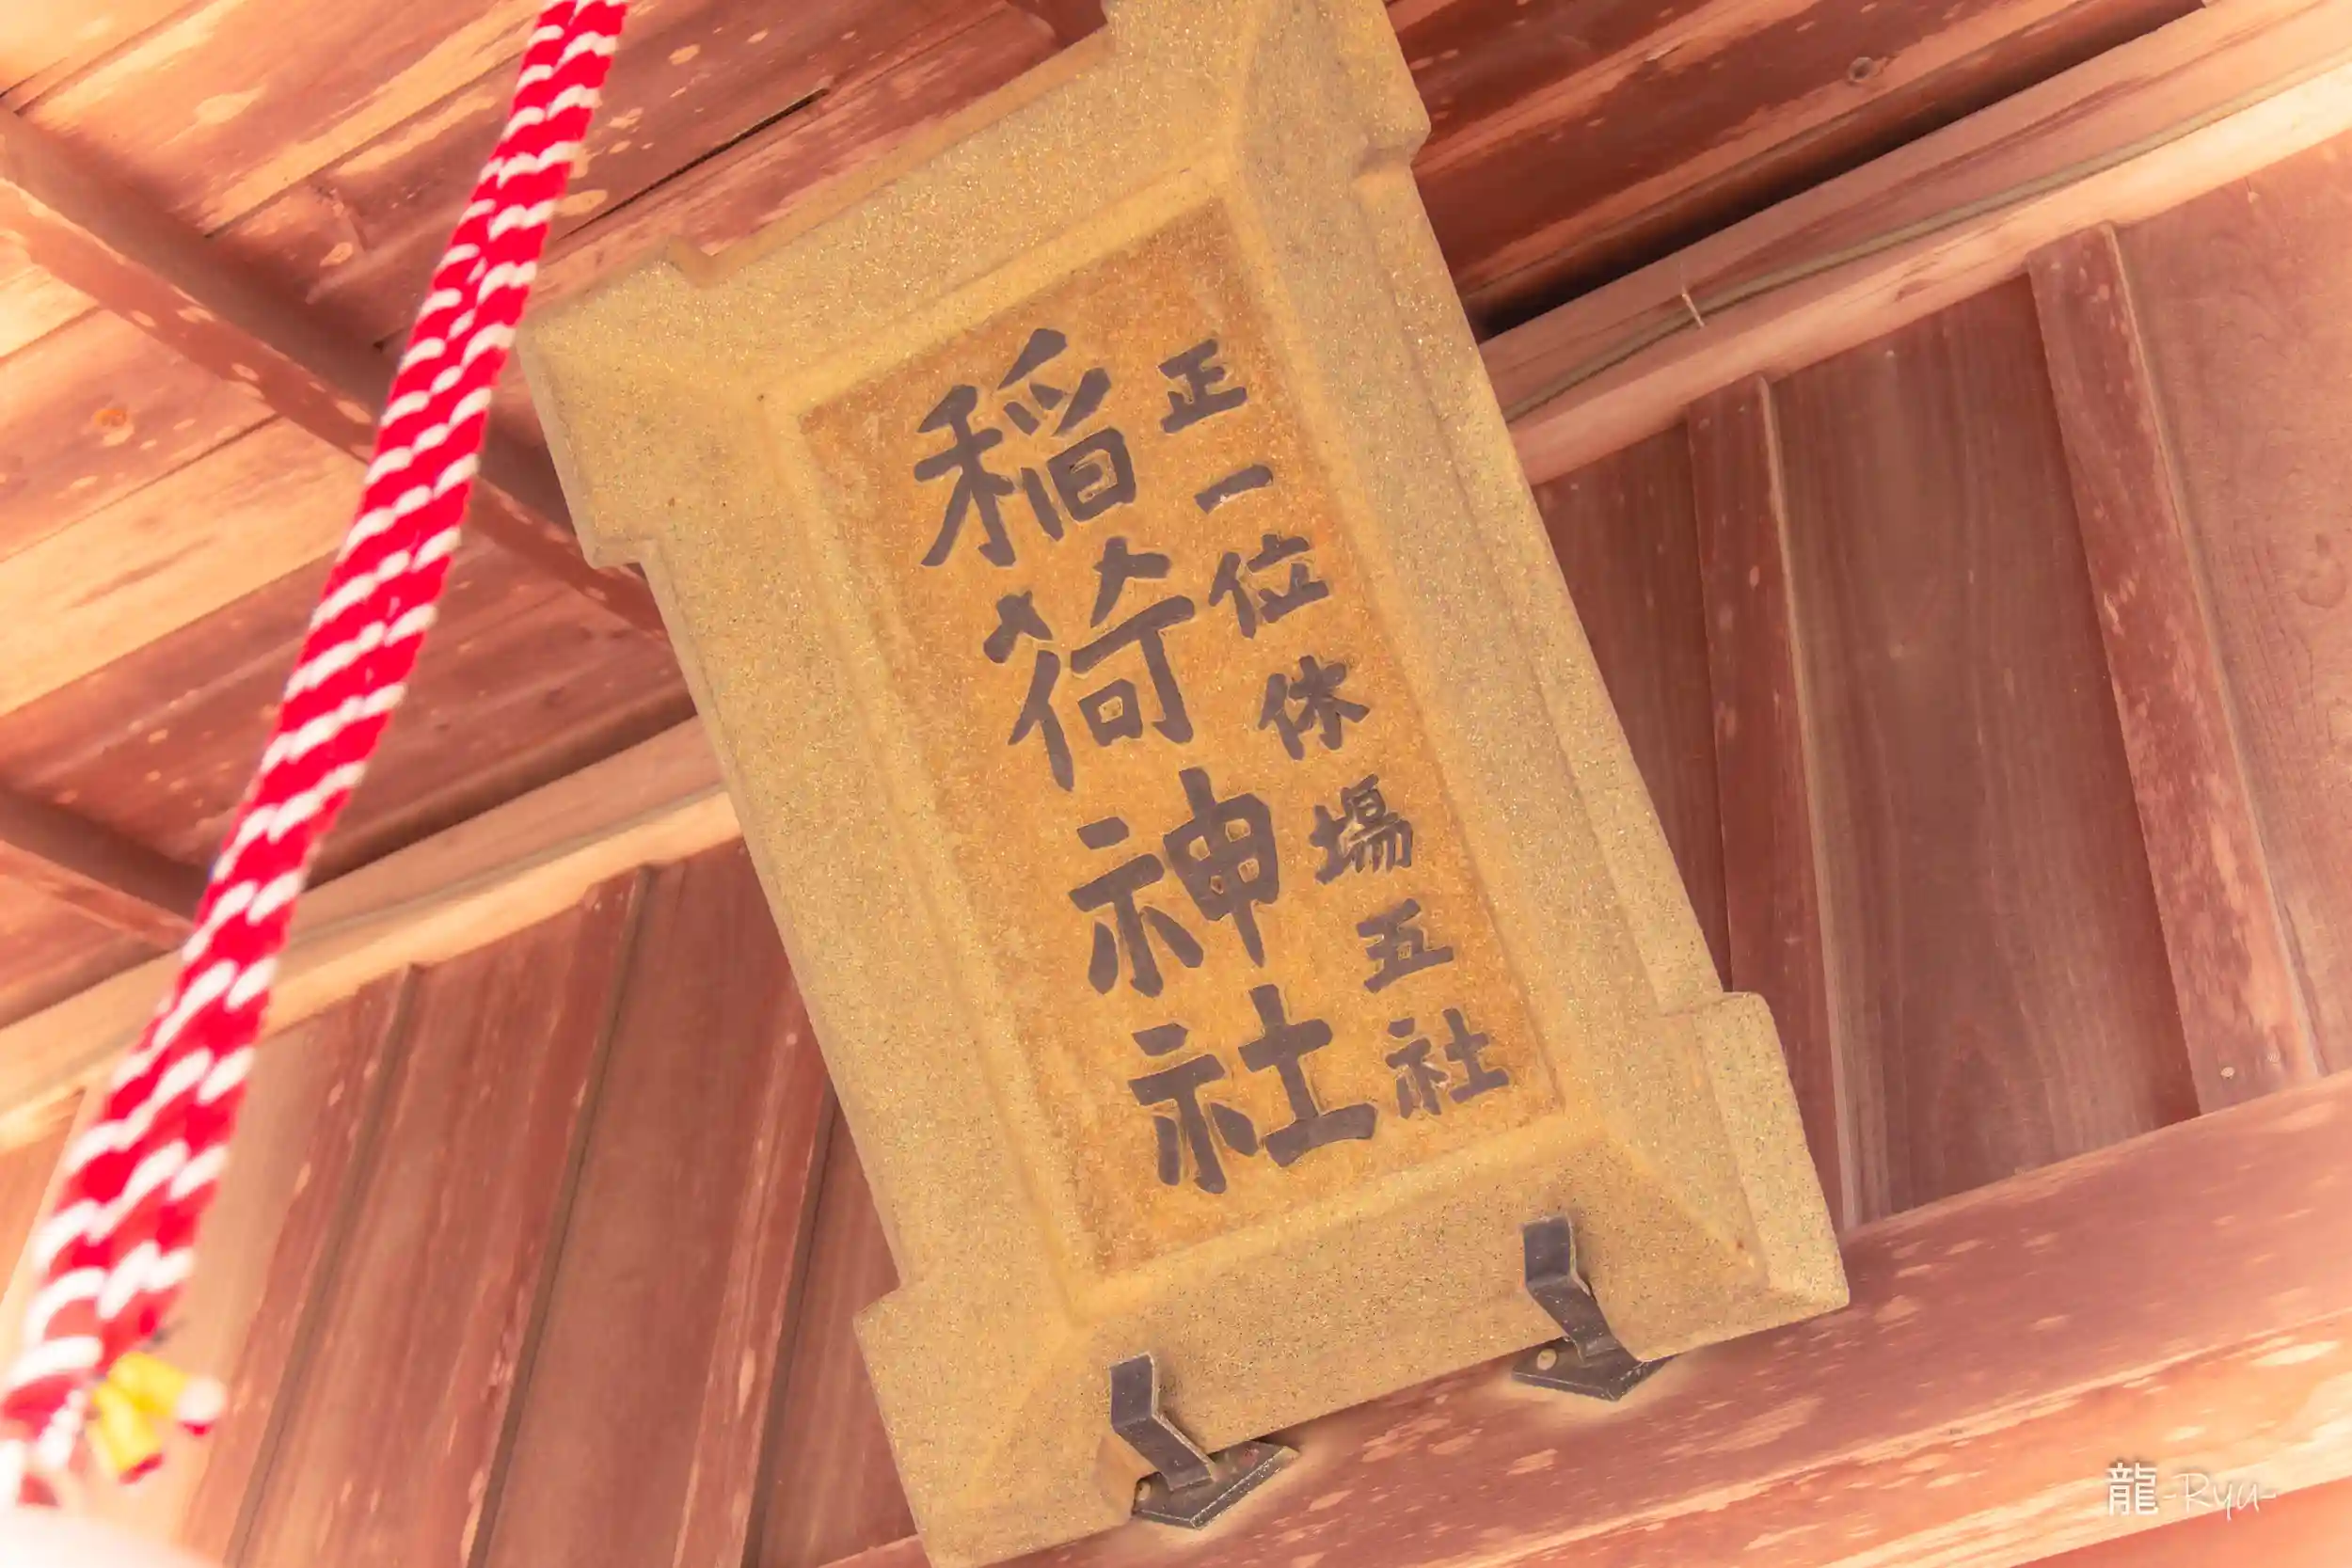 正一位休場五社
稲荷神社
龍-Ryu-